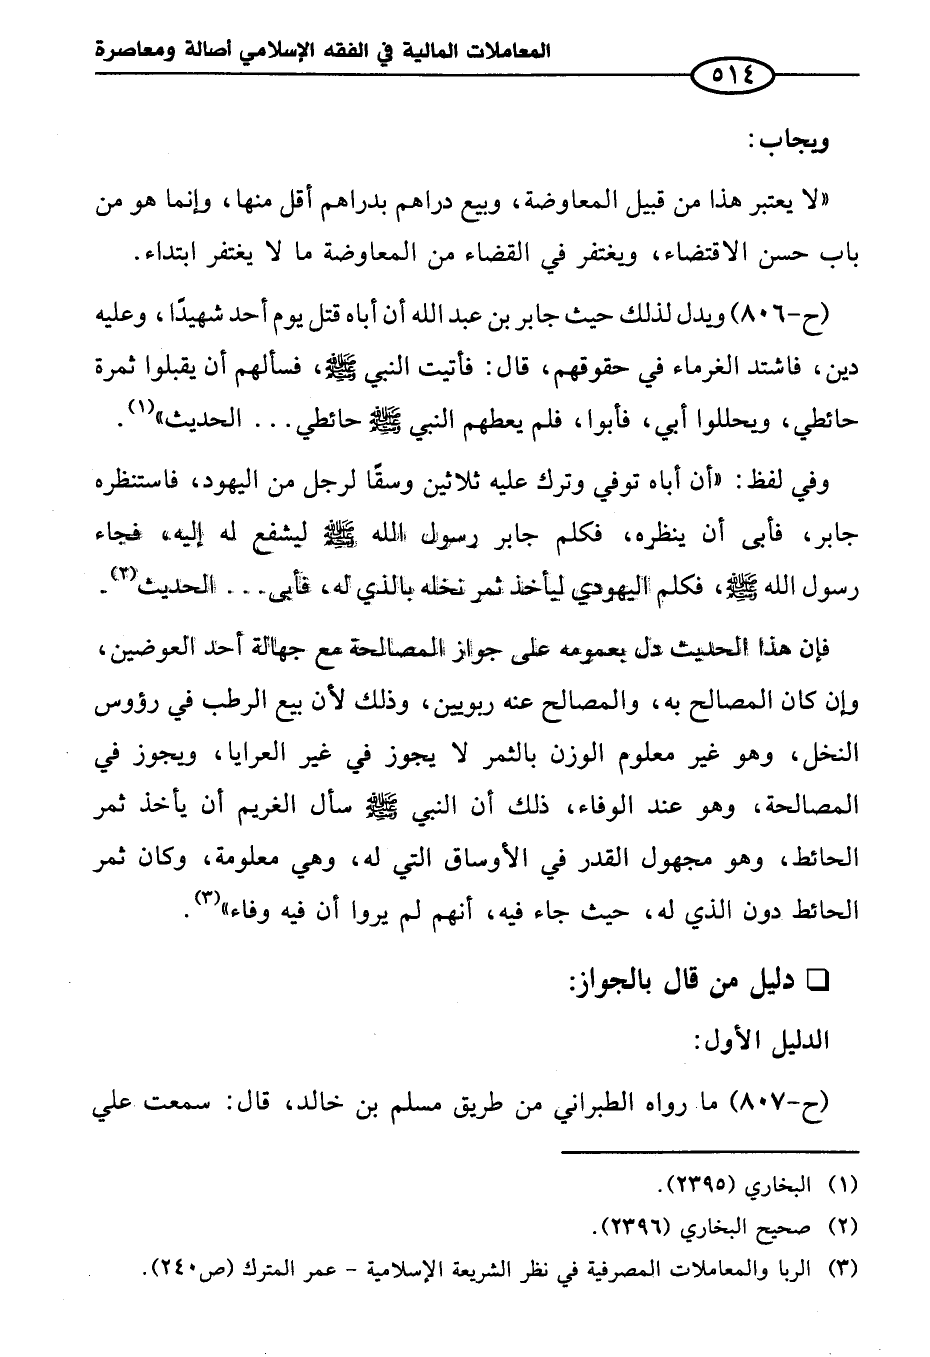 المعاملات المالية في الفقه الإسلامي أصالة ومعاصرة
٥١٤
ويجاب:
«لا يعتبر هذا من قبيل المعاوضة، وبيع دراهم بدراهم أقل منها، وإنما هو من
باب حسن الاقتضاء، ويغتفر في القضاء من المعاوضة ما لا يغتفر ابتداء.
(ح-٨٠٦) ويدل لذلك حيث جابر بن عبد الله أن أباه قتل يوم أحد شهيدًا، وعليه
دين، فاشتد الغرماء في حقوقهم، قال: فأتيت النبي ﷺ، فسألهم أن يقبلوا ثمرة
حائطي، ويحللوا أبي، فأبوا، فلم يعطهم النبي ﷺ حائطي... الحديث»(١).
وفي لفظ: «أن أباه توفي وترك عليه ثلاثين وسقًا لرجل من اليهود، فاستنظره
جابر، فأبى أن ينظره، فكلم جابر رسول الله ﷺ ليشفع له إليه، فجاء
رسول الله ﷺ، فكلم اليهودي ليأخذ ثمر نخله بالذي له، فأبى... الحديث(٢).
فإن هذا الحديث دل بعمومه على جواز المصالحة مع جهالة أحد العوضين،
وإن كان المصالح به، والمصالح عنه ربويين، وذلك لأن بيع الرطب في رؤوس
النخل، وهو غير معلوم الوزن بالثمر لا يجوز في غير العرايا، ويجوز في
المصالحة، وهو عند الوفاء، ذلك أن النبي ﷺ سأل الغريم أن يأخذ ثمر
الحائط، وهو مجهول القدر في الأوساق التي له، وهي معلومة، وكان ثمر
الحائط دون الذي له، حيث جاء فيه، أنهم لم يروا أن فيه وفاء»(٣).
❑ دليل من قال بالجواز:
الدليل الأول:
(ح-٨٠٧) ما رواه الطبراني من طريق مسلم بن خالد، قال: سمعت علي
(١) البخاري (٢٣٩٥).
(٢) صحيح البخاري (٢٣٩٦).
(٣) الربا والمعاملات المصرفية في نظر الشريعة الإسلامية - عمر المترك (ص٢٤٠).